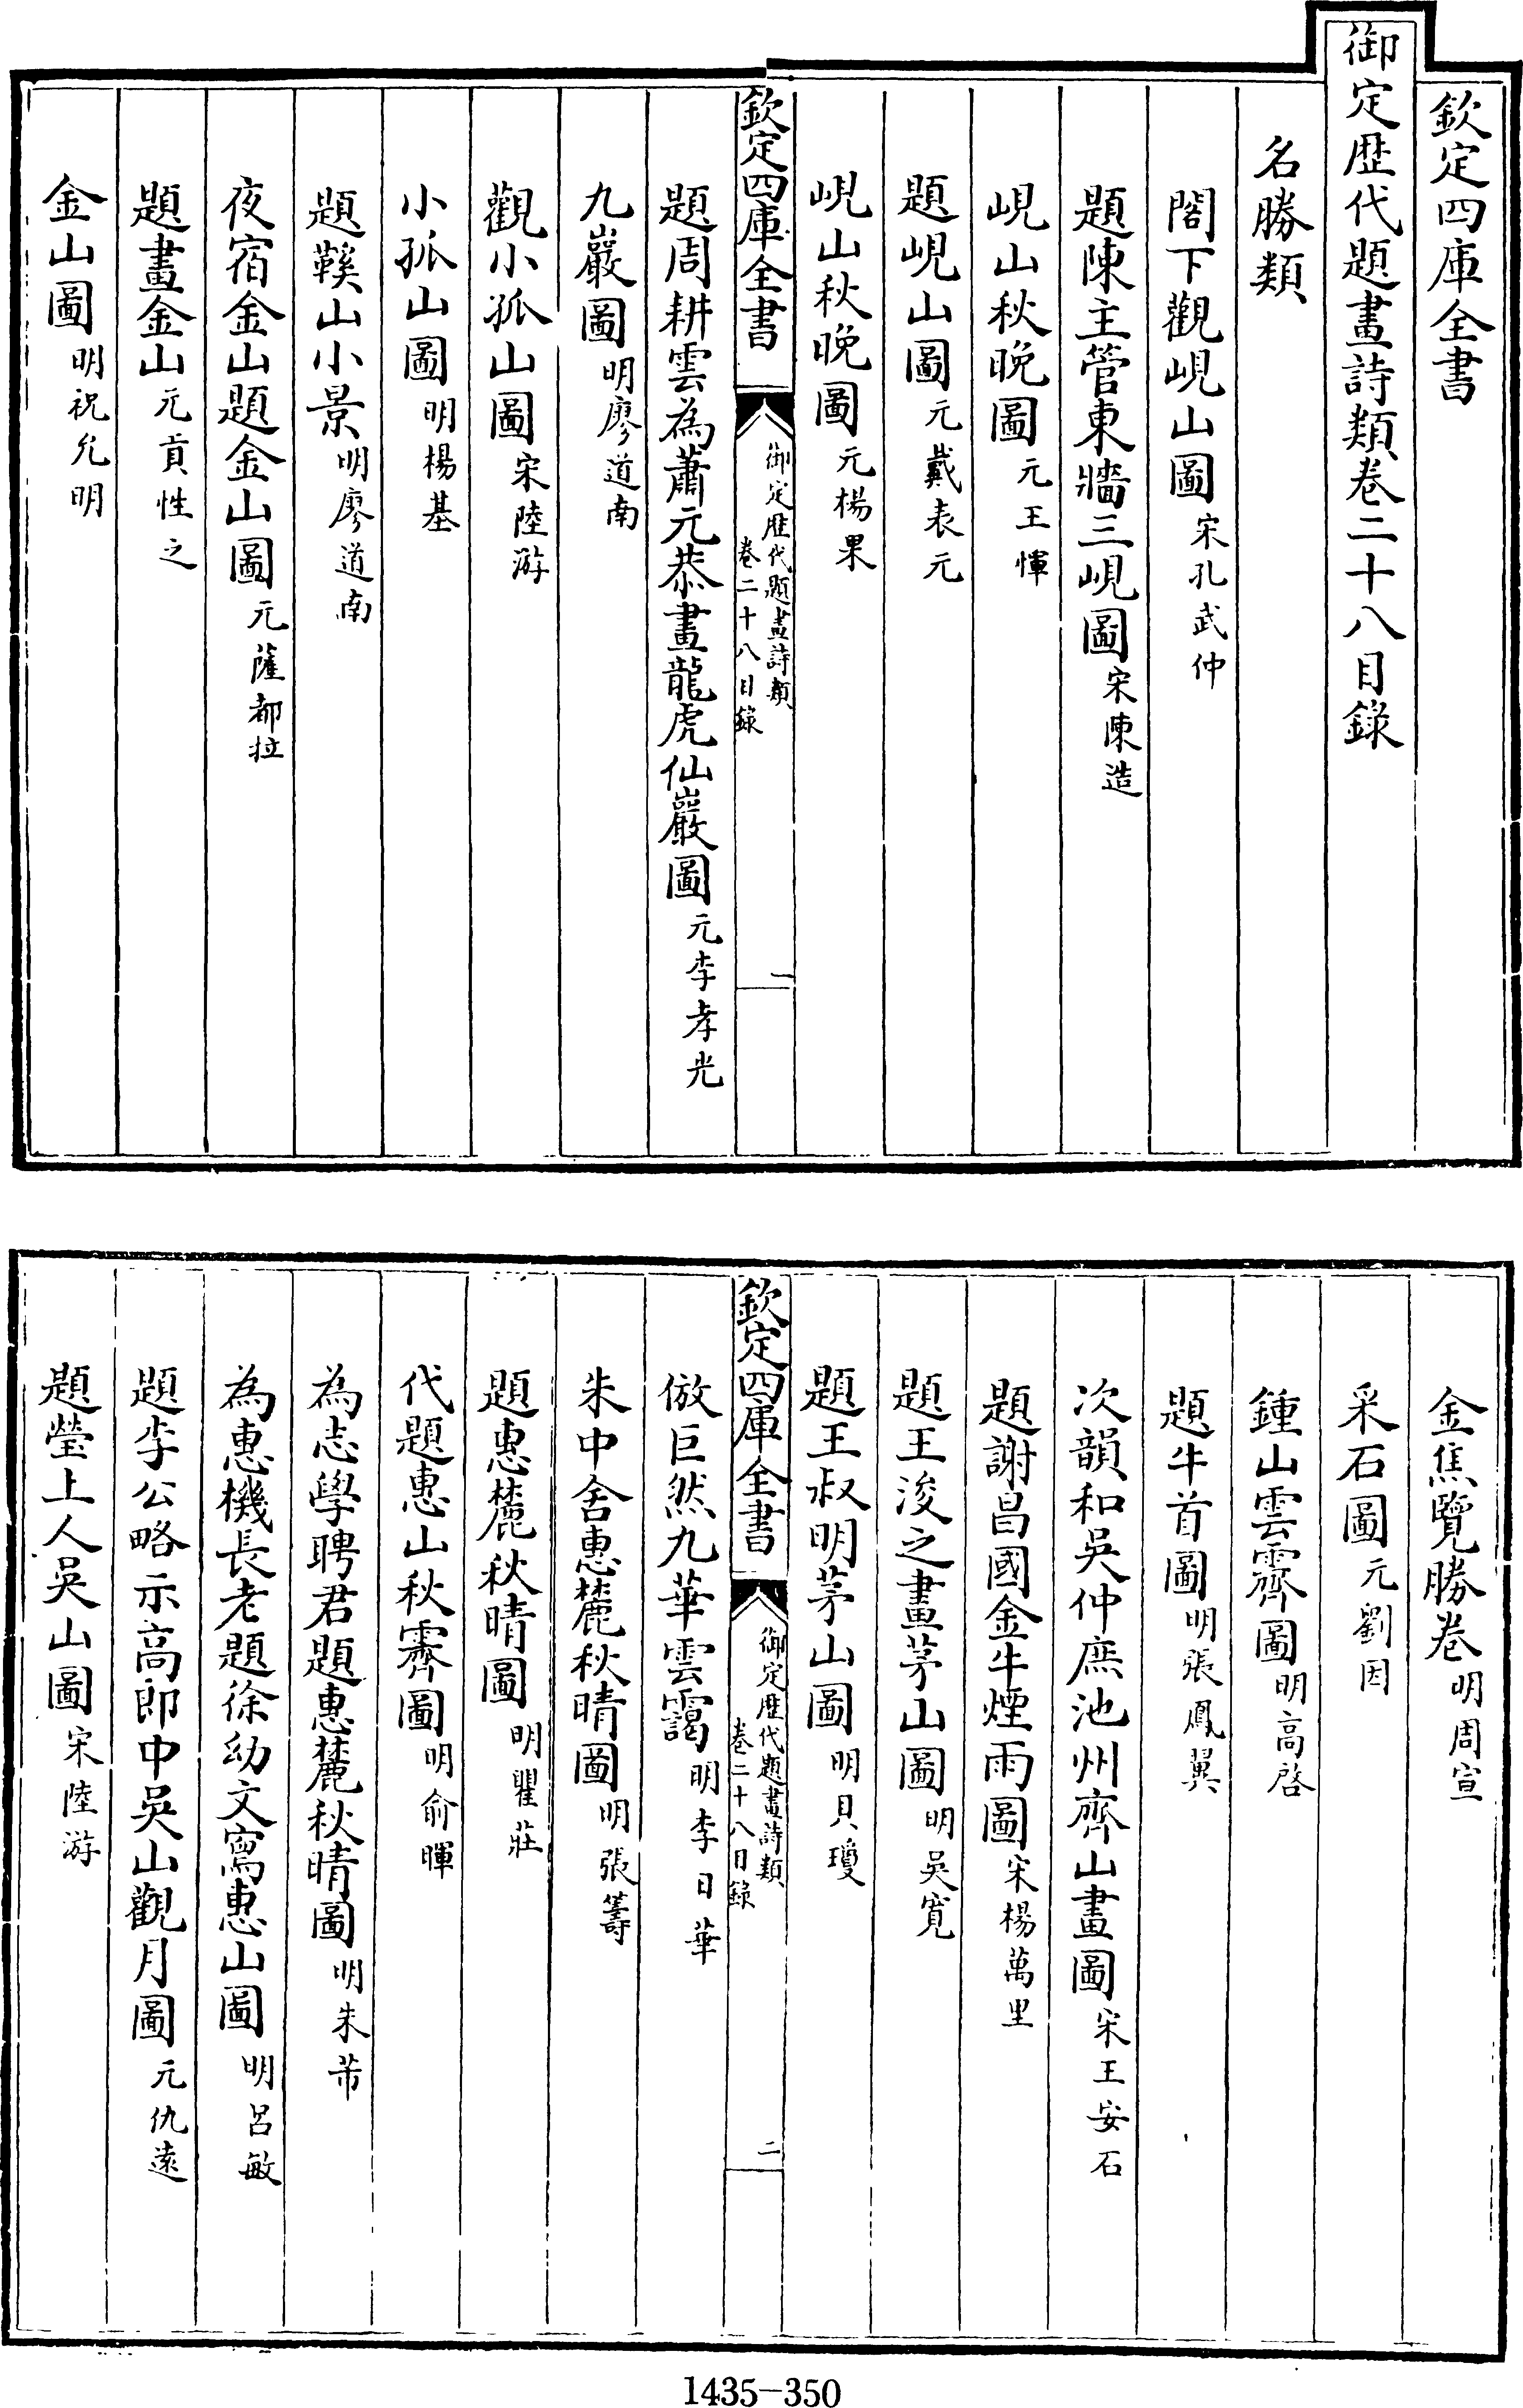 欽定四庫全書
御定歴代題畫詩類卷二十八目錄
名勝類
閣下觀峴山圖宋孔武仲
題陳主管東牆三峴圖宋陳造
峴山秋晚圖元王惲
題峴山圖元戴表元
峴山秋晚圖元楊果
欽定四庫全書
御定歴代題畫詩類
卷二十八目錄
一
題周耕雲為蕭元恭畫龍虎仙巖圖元李孝光
九巖圖明廖道南
觀小孤山圖宋陸游
小孤山圖明楊基
題鞵山小景明廖道南
夜宿金山題金山圖元薩都拉
題畫金山元貢性之
金山圖明祝允明
金焦覽勝卷明周宣
采石圖元劉因
鍾山雲霽圖明高啓
題牛首圖明張鳳翼
次韻和吳仲庶池州齊山畫圖宋王安石
題謝昌國金牛煙雨圖宋楊萬里
題王浚之畫茅山圖明吳寬
題王叔明茅山圖明貝瓊
欽定四庫全書
御定歴代題畫詩類
卷二十八目錄
二
倣巨然九華雲靄明李日華
朱中舍惠麓秋晴圖明張籌
題惠麓秋晴圖明瞿莊
代題惠山秋霽圖明俞暉
為志學聘君題惠麓秋晴圖明朱芾
為惠機長老題徐幼文寫惠山圖明呂敏
題李公略示高郎中吳山觀月圖元仇遠
題瑩上人吳山圖宋陸游
1435-350